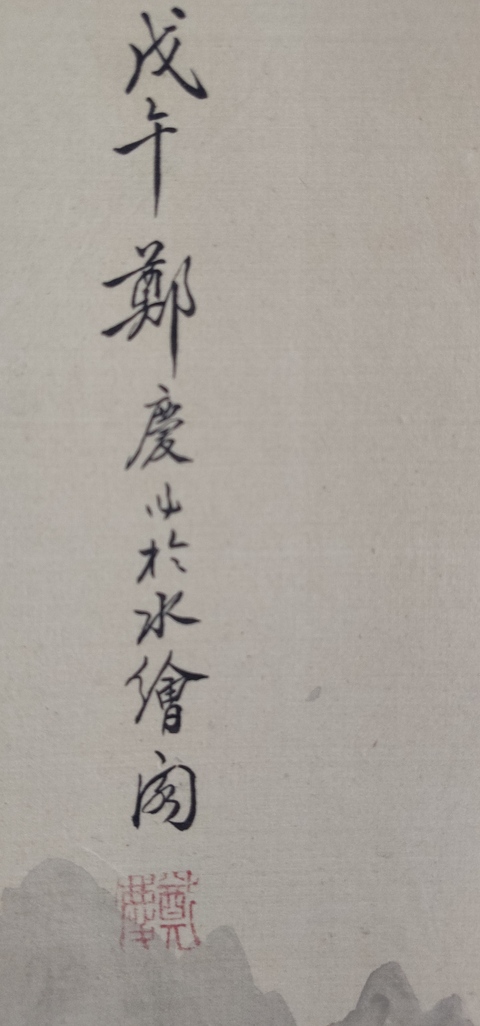 戊午鄭慶於水繪閣